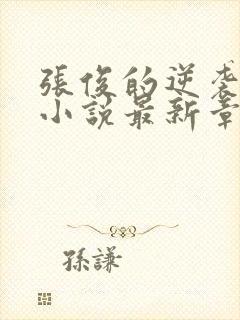 張俊的逆襲
小說最新章
孫謙